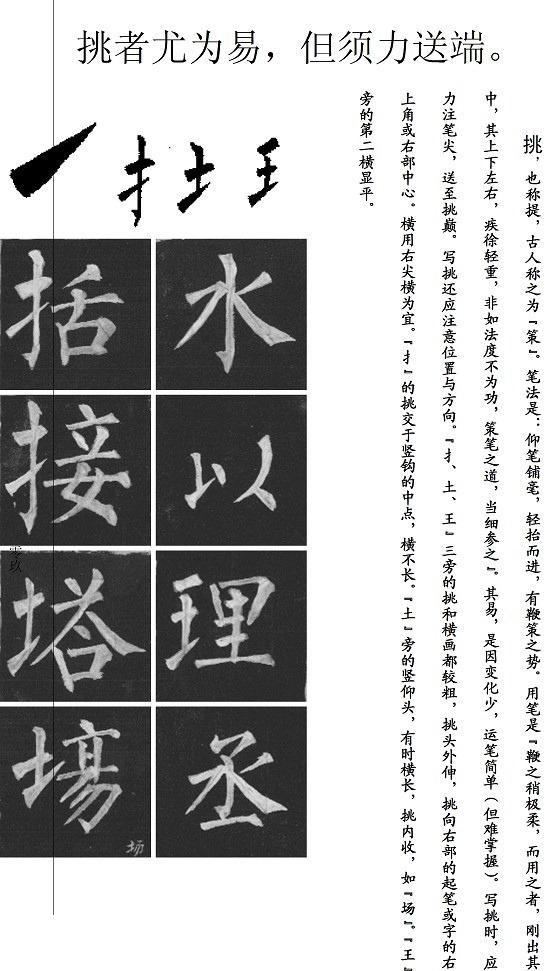 挑者尤为易，但须力送端。
挑，也称提，古人称之为『策』。笔法是：仰笔铺毫，轻抬而进，有鞭策之势。用笔是『鞭之稍极柔，而用之者，刚出其
中，其上下左右，疾徐轻重，非如法度不为功，策笔之道，当细参之』。其易，是因变化少，运笔简单（但难掌握）。写挑时，应
力注笔尖，送至挑巅。写挑还应注意位置与方向。『扌、土、王』三旁的挑和横画都较粗，挑头外伸，挑向右部的起笔或字的右
上角或右部中心。横用右尖横为宜。『扌』的挑交于竖钩的中点，横不长。『土』旁的竖仰头，有时横长，挑内收，如『场』。『王』
旁的第二横显平。
扌土王
水以理丞
括接塔塲
场
零玖